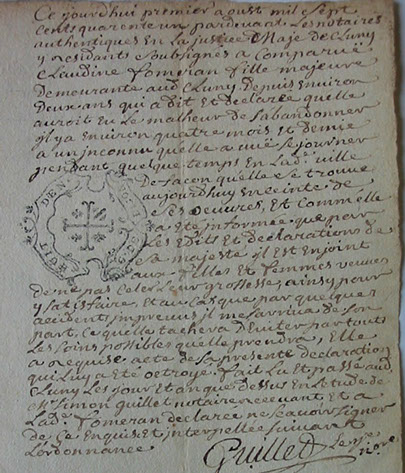 Ce jourdhui premier aoust mil sept
Cents quarente un pardevant Les notaires
authentiques En La justice Maje de Cluny
y Residant soubsignés a Comparuë
Claudine Tomeran fille majeure
demeurante aud Cluny Depuis Environ
Deux ans qui a dit et declaré quelle
auroit Eu Le malheur de sabandonner
il y a Environ quatre mois et demie
a un jnconnu quelle a vüe sejourner
pendant quelque temps En Lad. ville
De facon quelle se trouve
aujourdhuy Enceinte de
ses oeuvres, Et comm elle
a Eté jnformée que par
Les Edits Et declarations de
sa majesté il Est Enjoint
aux filles et femmes veuves
de ne pas celer Leur grossesse, ainsy pour
y satisfaire, Et au Cas que par quelques
accidents jmprevus il mesarriva de son
part. Ce quelle tachera Deviter par touts
Les soins possibles quelle prendra, Elle
a Requise acte de sa presente declaration
qui Luy a Eté octroyé. fait Lu Et passé aud
Cluny Les jour Et an que dessus En Letude de
Me Simon Guillet notaire recevant, Et a
Lad. Tomeran declarée ne scavoir signer
de Ce Enquise Et jnterpellée suivant
Lordonnance
Guillet